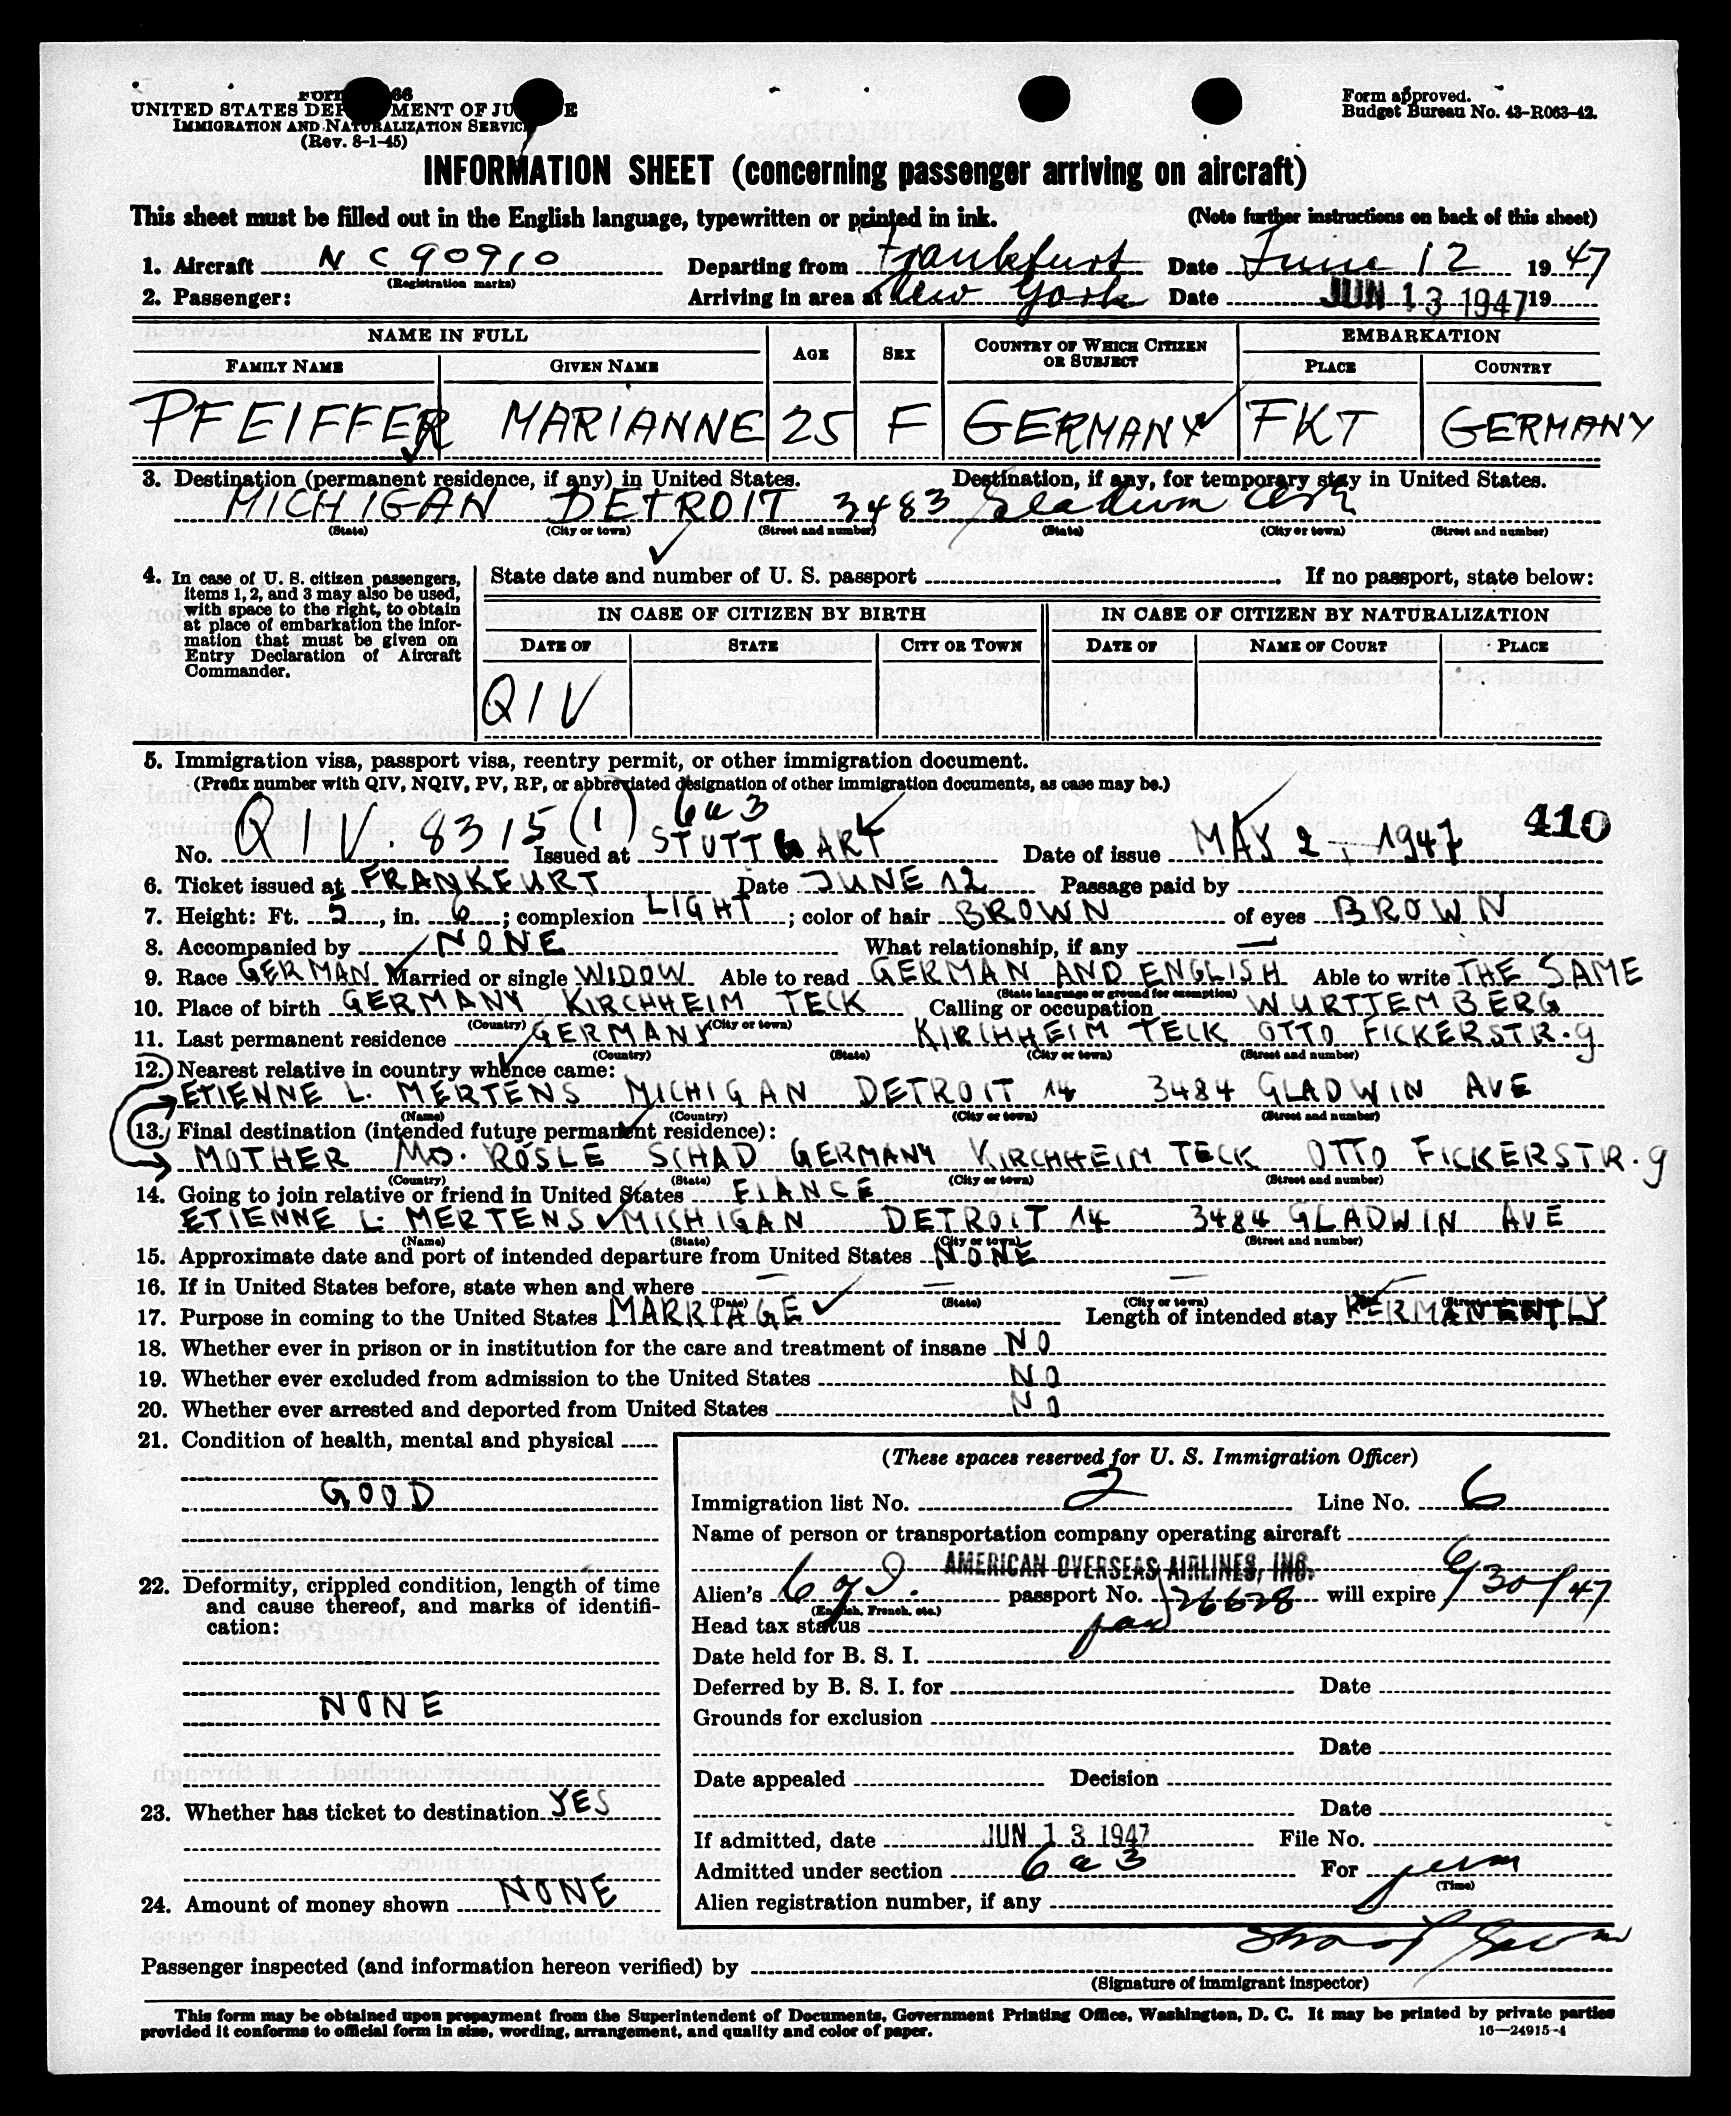 UNITED STATES DEPARTMENT OF JUSTICE
IMMIGRATION AND NATURALIZATION SERVICE
(Rev. 8-1-45)
Form approved.
Budget Bureau No. 43-R063-42.
INFORMATION SHEET (concerning passenger arriving on aircraft)
This sheet must be filled out in the English language, typewritten or printed in ink. (Note further instructions on back of this sheet)
1. Aircraft NC90910 Departing from Frankfurt Date June 12 1947
(Registration marks)
2. Passenger: Arriving in area at New York Date JUN 13 1947 19
NAME IN FULL AGE SEX COUNTRY OF WHICH CITIZEN OR SUBJECT EMBARKATION
FAMILY NAME GIVEN NAME PLACE COUNTRY
PFEIFFER MARIANNE 25 F GERMANY FKT GERMANY
3. Destination (permanent residence, if any) in United States. Destination, if any, for temporary stay in United States.
MICHIGAN DETROIT 3483
(State) (City or town) (Street and number) (State) (City or town) (Street and number)
4. In case of U. S. citizen passengers, items 1, 2, and 3 may also be used, with space to the right, to obtain at place of embarkation the information that must be given on Entry Declaration of Aircraft Commander.
State date and number of U. S. passport . If no passport, state below:
IN CASE OF CITIZEN BY BIRTH IN CASE OF CITIZEN BY NATURALIZATION
DATE OF STATE CITY OR TOWN DATE OF NAME OF COURT PLACE
QIV
5. Immigration visa, passport visa, reentry permit, or other immigration document.
(Prefix number with QIV, NQIV, PV, RP, or abbreviated designation of other immigration documents, as case may be.)
6a3
410
No. QIV. 8315 (1) Issued at STUTTGART Date of issue MAY 2, 1947
6. Ticket issued at FRANKFURT Date JUNE 12 Passage paid by
7. Height: Ft. 5, in. 6; complexion LIGHT; color of hair BROWN of eyes BROWN
8. Accompanied by NONE What relationship, if any —
9. Race GERMAN Married or single WIDOW Able to read GERMAN AND ENGLISH Able to write THE SAME
(State language or ground for exemption)
10. Place of birth GERMANY KIRCHHEIM TECK Calling or occupation WURTTEMBERG
(Country) (City or town)
11. Last permanent residence GERMANY KIRCHHEIM TECK OTTO FICKERSTR. 9
(Country) (State) (City or town) (Street and number)
12. Nearest relative in country whence came:
ETIENNE L. MERTENS MICHIGAN DETROIT 14 3484 GLADWIN AVE
(Name) (Country) (City or town) (Street and number)
13. Final destination (intended future permanent residence):
MOTHER RÖSLE SCHAD GERMANY KIRCHHEIM TECK OTTO FICKERSTR. 9
(Country) (State) (City or town) (Street and number)
14. Going to join relative or friend in United States FIANCE
ETIENNE L. MERTENS MICHIGAN DETROIT 14 3484 GLADWIN AVE
(Name) (State) (City or town) (Street and number)
15. Approximate date and port of intended departure from United States NONE
16. If in United States before, state when and where — — — —
(Date) (State) (City or town) (Street and number)
17. Purpose in coming to the United States MARRIAGE Length of intended stay PERMANENTLY
18. Whether ever in prison or in institution for the care and treatment of insane NO
19. Whether ever excluded from admission to the United States NO
20. Whether ever arrested and deported from United States NO
21. Condition of health, mental and physical
GOOD
22. Deformity, crippled condition, length of time and cause thereof, and marks of identification:
NONE
23. Whether has ticket to destination YES
24. Amount of money shown NONE
(These spaces reserved for U. S. Immigration Officer)
Immigration list No. 2 Line No. 6
Name of person or transportation company operating aircraft
AMERICAN OVERSEAS AIRLINES, INC.
Alien's passport No. 26628 will expire 6/30/47
(English, French, etc.)
Head tax status
Date held for B. S. I.
Deferred by B. S. I. for Date
Grounds for exclusion
Date
Date appealed Decision
Date
If admitted, date JUN 13 1947 File No.
Admitted under section 6a3 For perm
(Time)
Alien registration number, if any
Passenger inspected (and information hereon verified) by
(Signature of immigrant inspector)
This form may be obtained upon prepayment from the Superintendent of Documents, Government Printing Office, Washington, D. C. It may be printed by private parties
provided it conforms to official form in size, wording, arrangement, and quality and color of paper. 16—24915-4